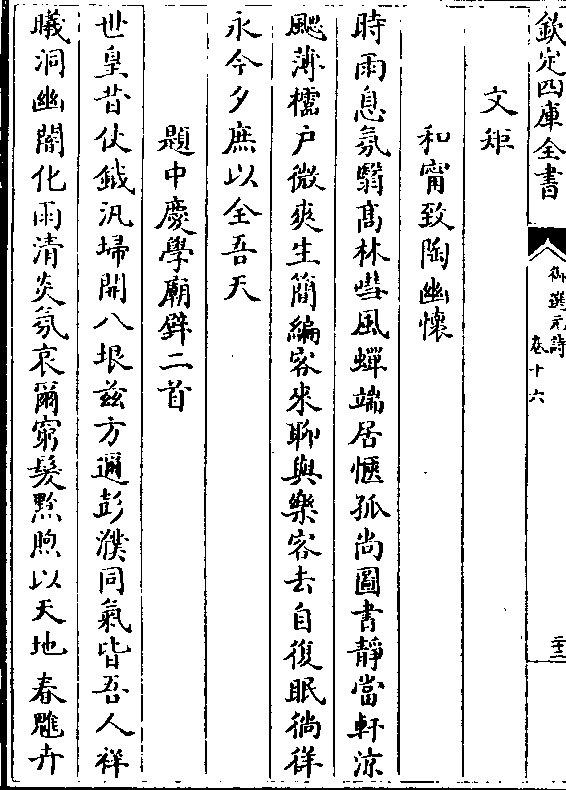 欽定四庫全書
御選元詩
卷十六
二十二
文矩
和甯致陶幽懷
時雨息氛翳髙林嘒風蟬端居愜孤尚圖書靜當軒涼
颸薄櫺户微爽生簡編客來聊與樂客去自復眠徜徉
永今夕庶以全吾天
題中慶學廟壁二首
世皇昔仗鉞汎埽開八垠兹方邇彭濮同氣皆吾人祥
曦洞幽闇化雨清炎氛哀爾窮髮黥煦以天地春雕卉